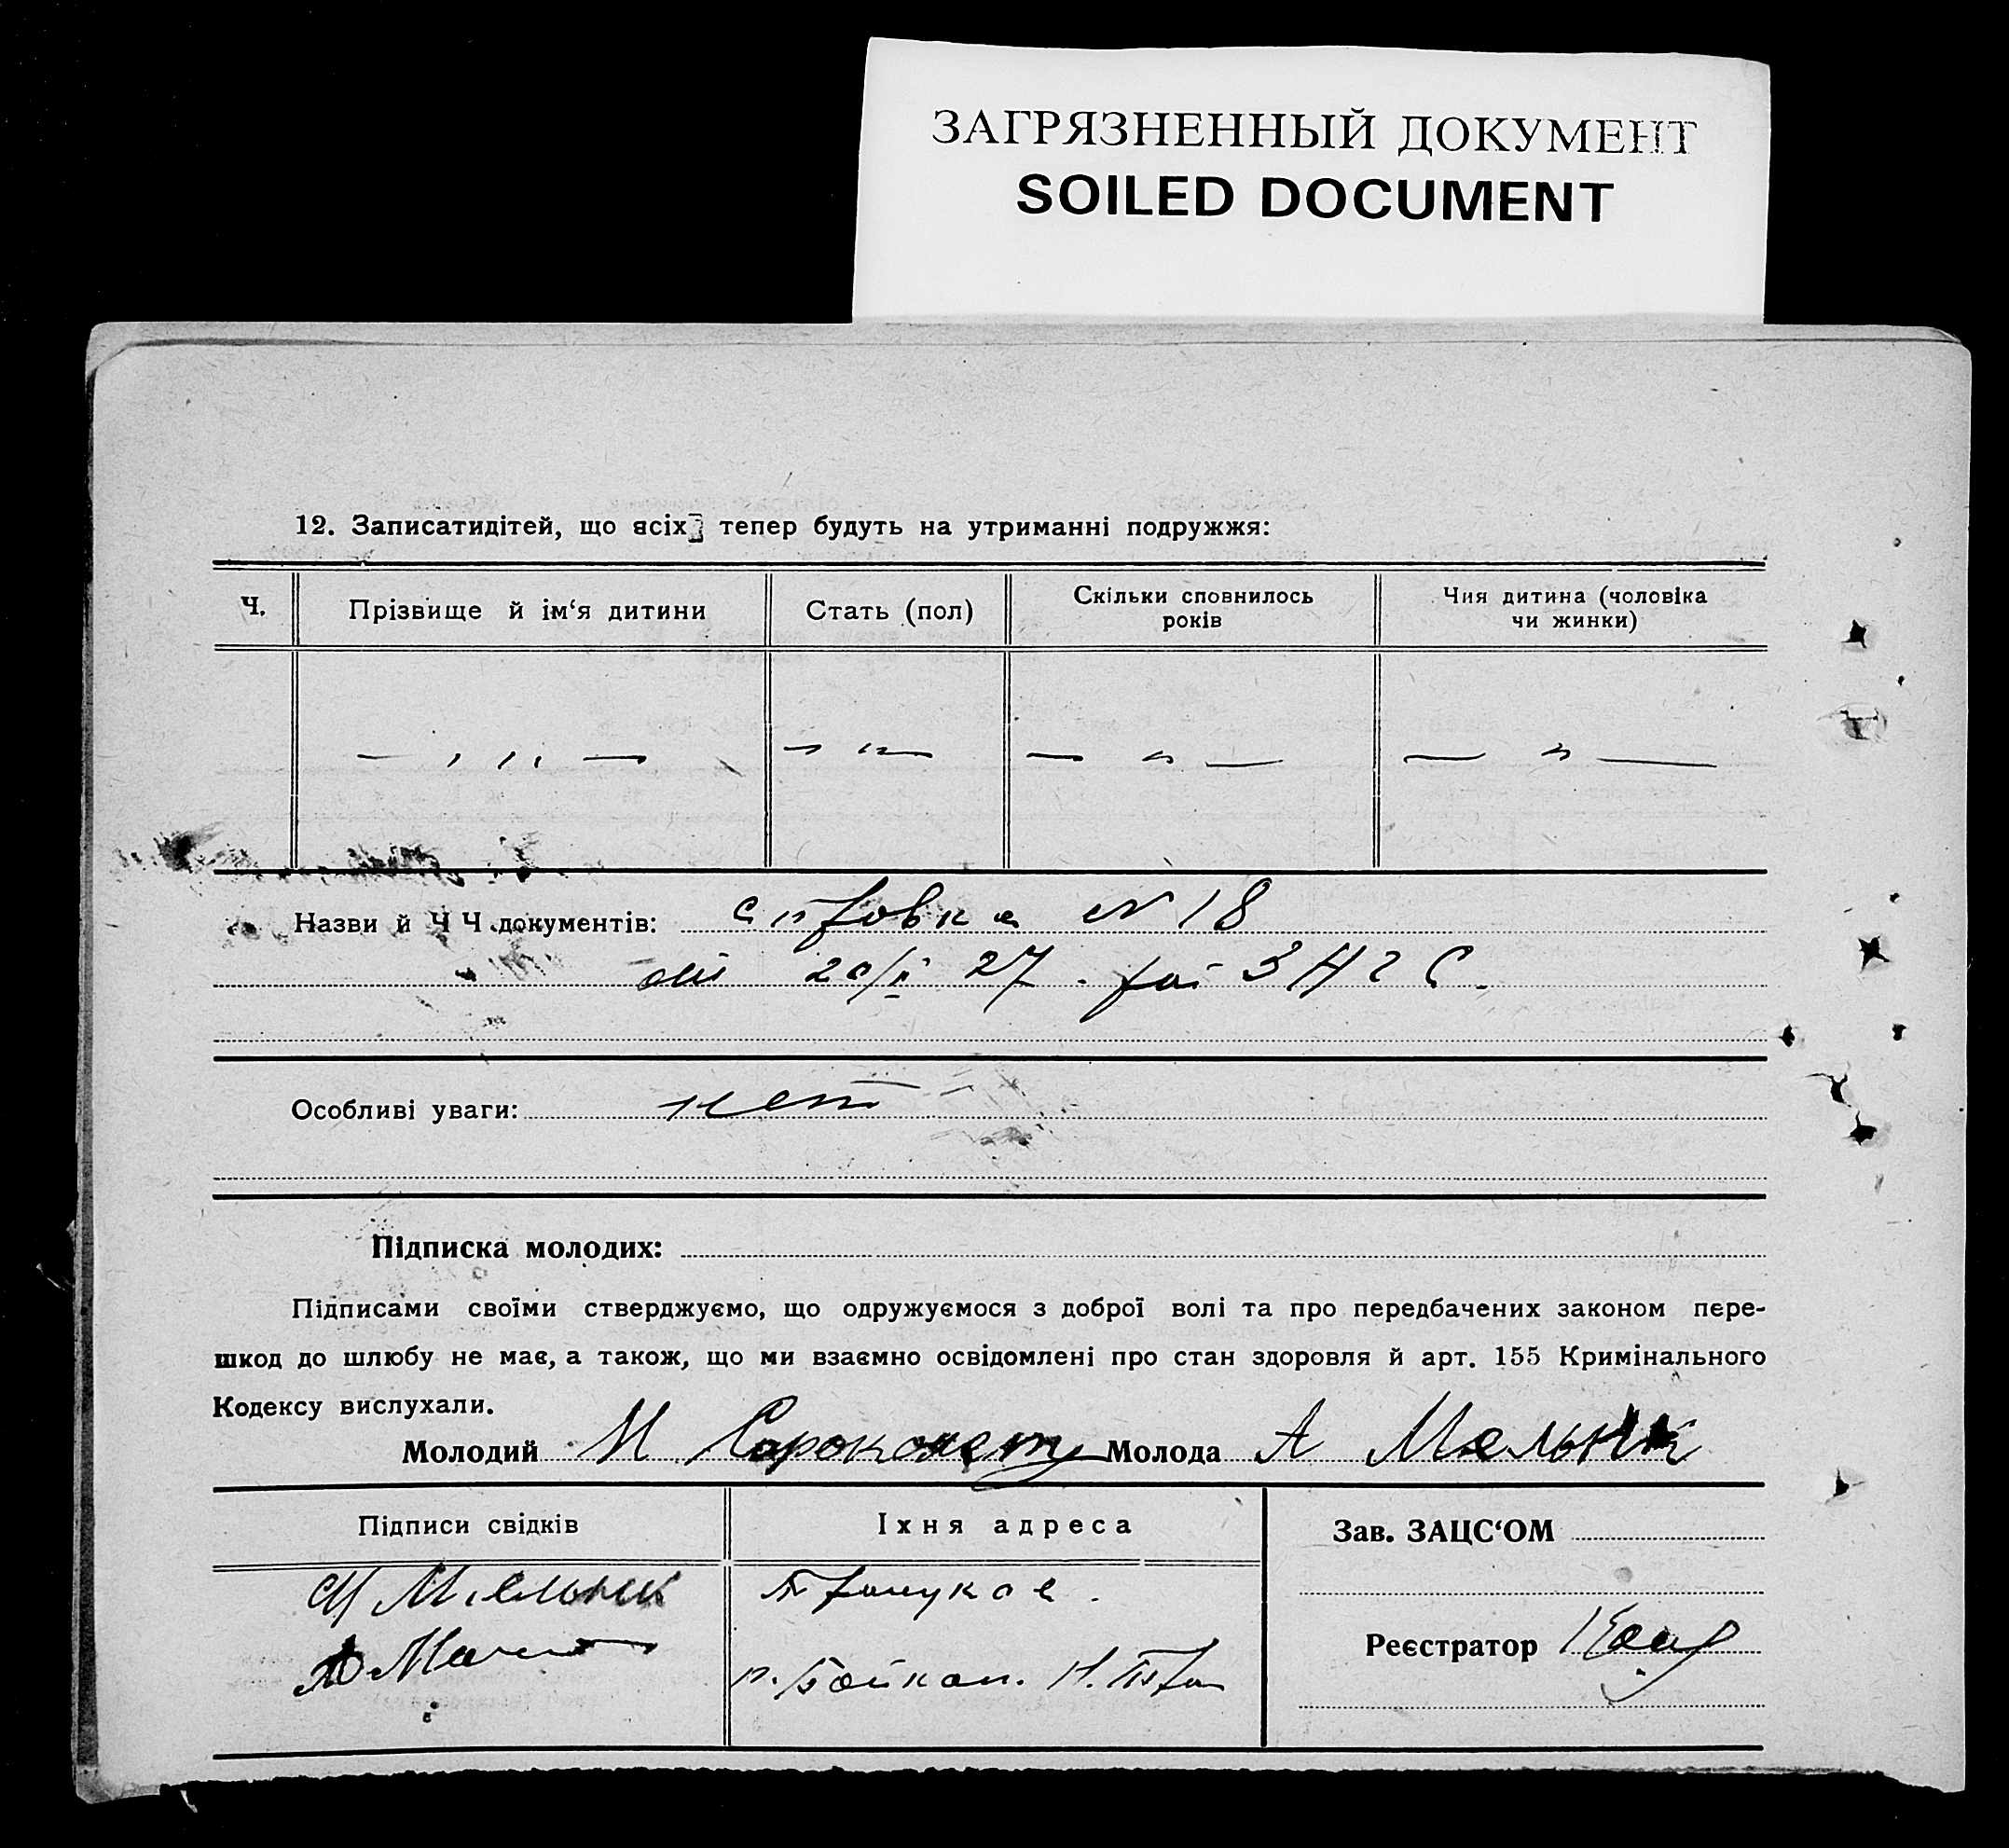 ЗАГРЯЗНЕННЫЙ ДОКУМЕНТ
SOILED DOCUMENT
12. Записатидітей, що всіх тепер будуть на утриманні подружжя:
Ч.
Прізвище й ім‘я дитини
Стать (пол)
Скільки сповнилось
років
Чия дитина (чоловіка
чи жинки)
— „ —
— „ —
— „ —
— „ —
Назви й Ч Ч документів: справка N 18
27. рай ЗАГС.
Особливі уваги: нет
Підписка молодих:
Підписами своїми стверджуємо, що одружуємося з доброї волі та про передбачених законом пере-
шкод до шлюбу не має, а також, що ми взаємно освідомлені про стан здоровля й арт. 155 Кримінального
Кодексу вислухали.
Молодий М Молода А Мельник
Підписи свідків
Їхня адреса
Зав. ЗАЦС‘ОМ
Мельник
Реєстратор